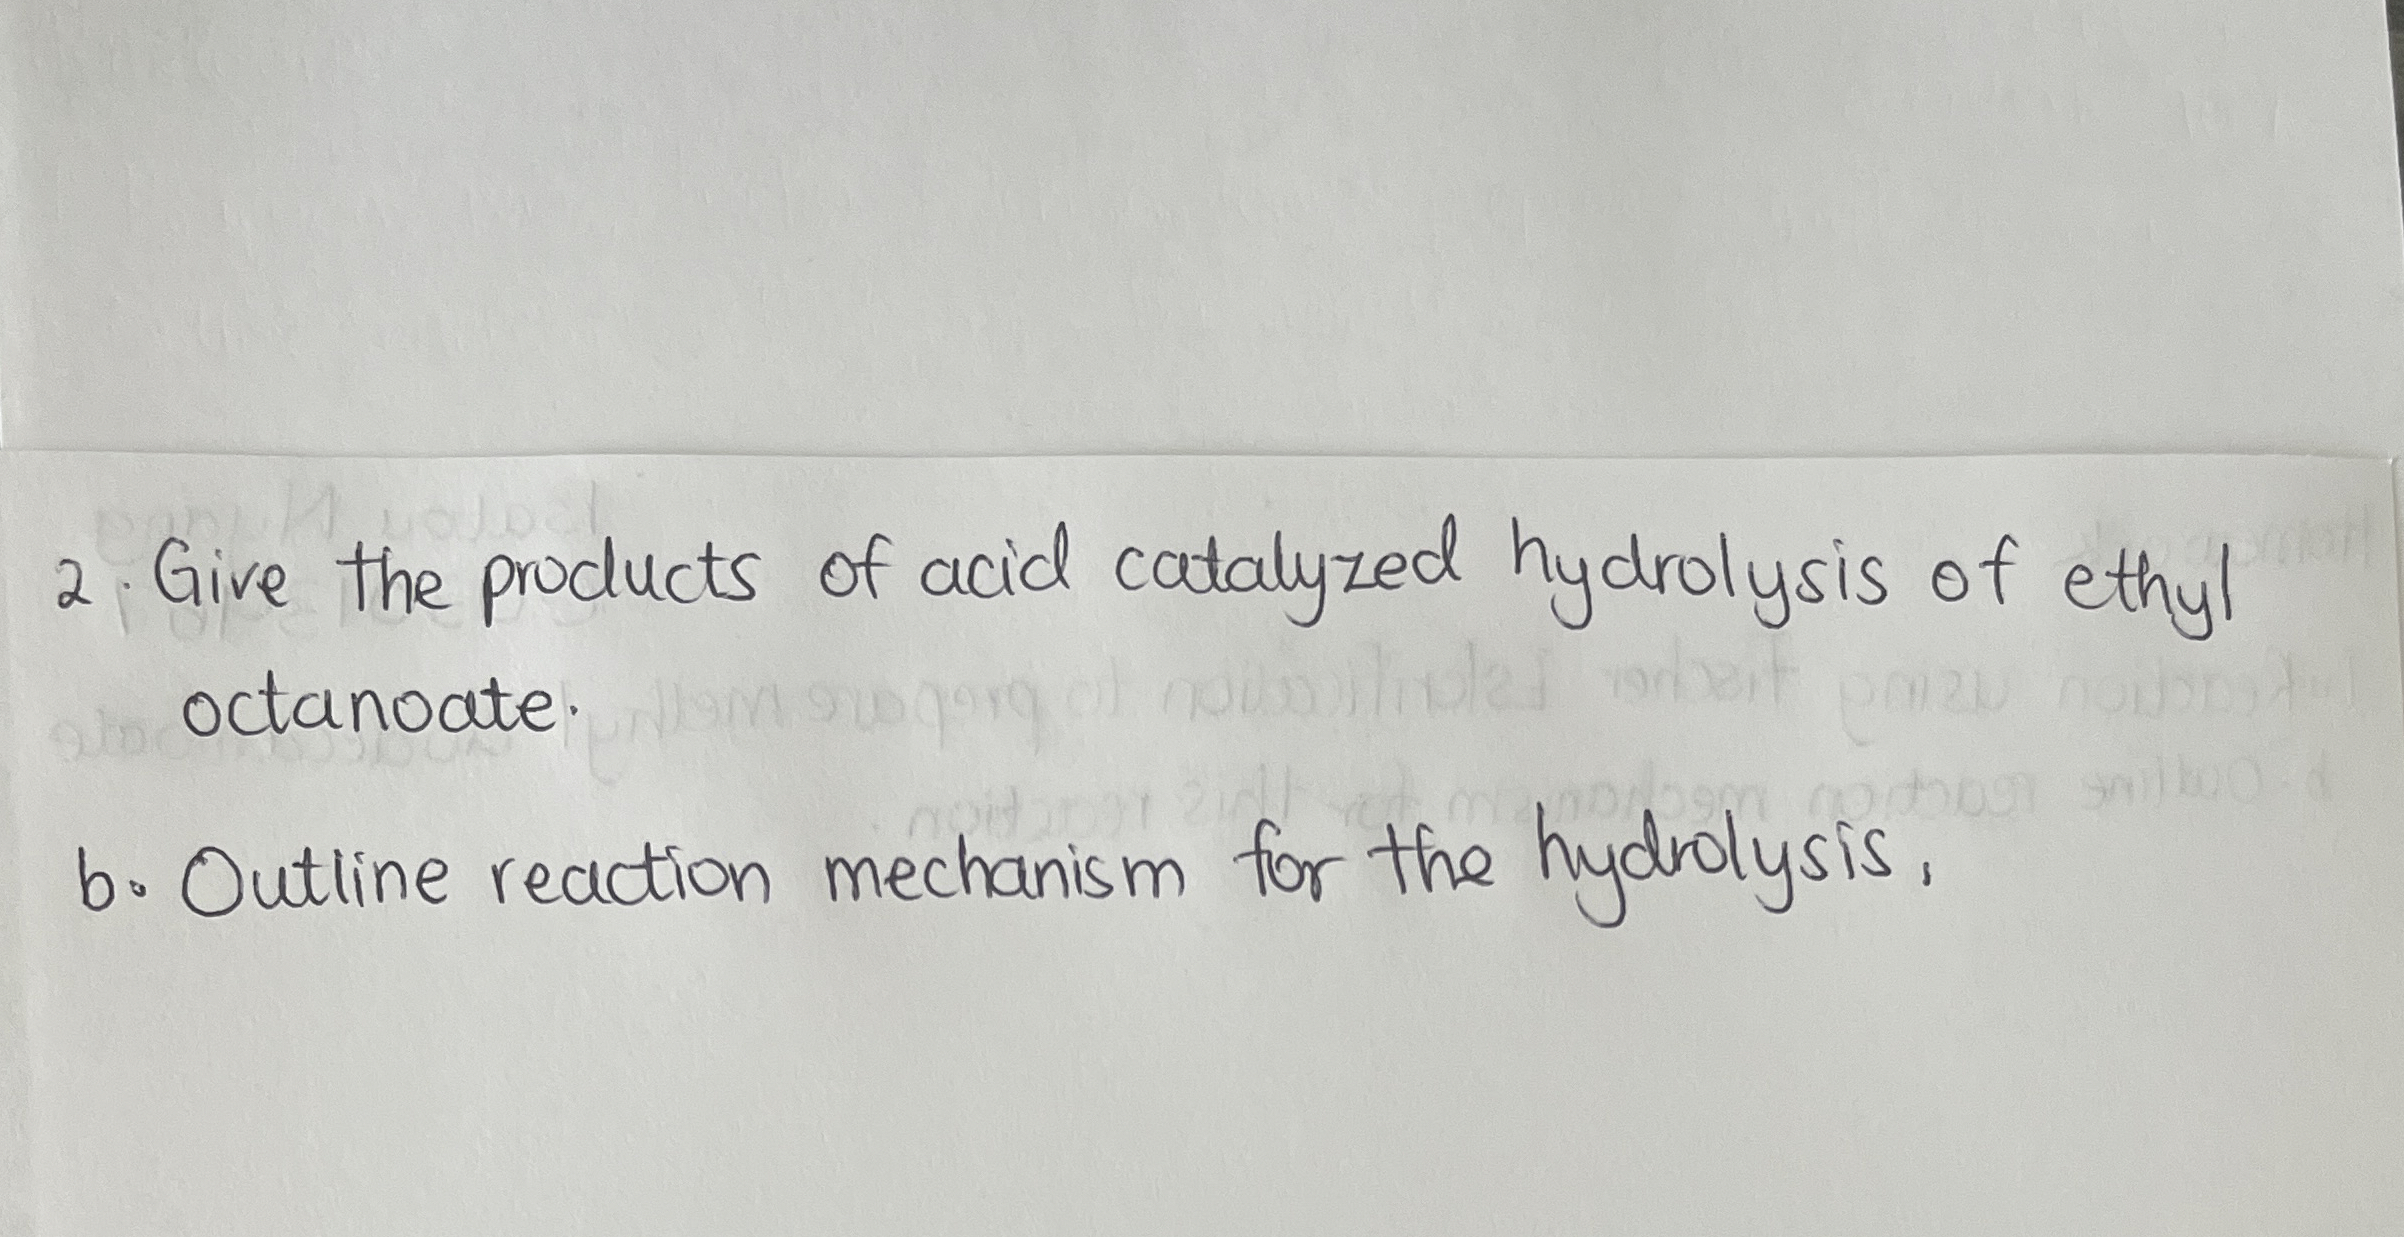 2. Give the products of acid catalyzed hydrolysis of ethyl
octanoate.
b. Outline reaction mechanism for the hydrolysis.